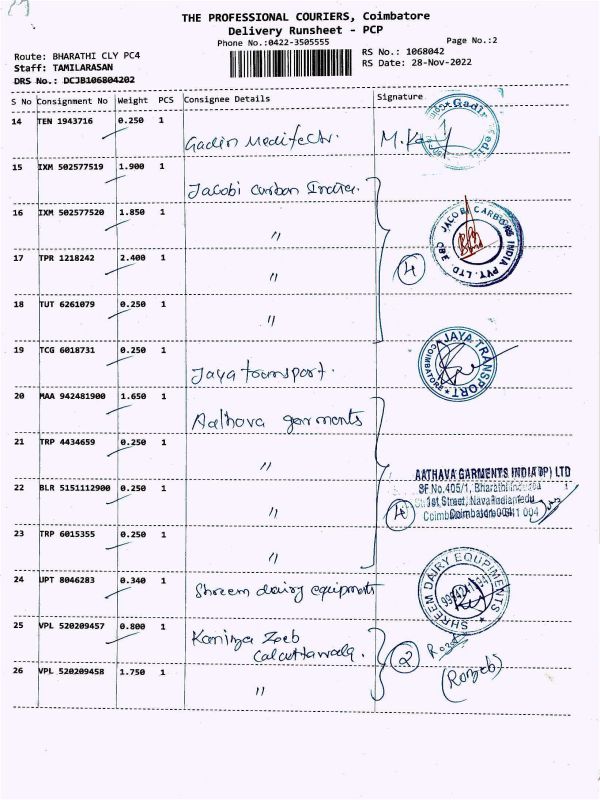 THE PROFESSIONAL COURIERS, Coimbatore
Delivery Runsheet - PCP
Phone No.:0422-3505555
Page No.:2
Route: BHARATHI CLY PC4
RS No.: 1068042
Staff: TAMILARASAN
RS Date: 28-Nov-2022
DRS No.: DCJB106804202
S No Consignment No Weight PCS Consignee Details Signature
14 TEN 1943716 0.250 1
15 IXM 502577519 1.900 1 Jacobi carbon India.
16 IXM 502577520 1.850 1 "
17 TPR 1218242 2.400 1 " 4
18 TUT 6261079 0.250 1 "
JACOBI CARBONS INDIA PVT. LTD.
19 TCG 6018731 0.250 1 Jaya transport.
JAYA TRANSPORT
COIMBATORE
20 MAA 942481900 1.650 1 Aathava garments
21 TRP 4434659 0.250 1 "
22 BLR 5151112900 0.250 1 " 4
AATHAVA GARMENTS INDIA (P) LTD
SF No.405/1, Bharathi
1st Street, Nava
23 TRP 6015355 0.250 1 "
24 UPT 8046283 0.340 1 Shreem dairy equipments
SHREEM DAIRY EQUIPMENTS
25 VPL 520209457 0.800 1 Zeeb
Calcuttawala. 2
26 VPL 520209458 1.750 1 "